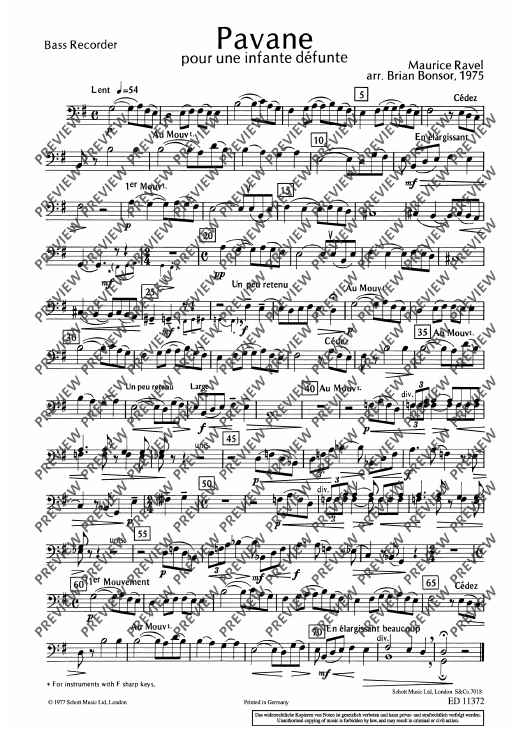 Pavane
Bass Recorder
pour une infante défunte
Maurice Ravel
arr. Brian Bonsor, 1975
Lent ♩=54
5
Cédez
Au Mouvt.
10
En élargissant
mf
1er Mouvt.
15
p
20
pp
Un peu retenu
Au Mouvt.
25
mf
pp
30
Cédez
35
Au Mouvt.
Un peu retenu
Large
40
Au Mouvt.
div.
3
3
f
p
f
unis.
45
f
p
mf
50
div.
3
p
mf
unis.
55
div.
p
3
mf
f
3
60
1er Mouvement
65
Cédez
mf
Au Mouvt.
70
En élargissant beaucoup
mf
f
PREVIEW PREVIEW PREVIEW PREVIEW PREVIEW PREVIEW
* For instruments with F sharp keys.
Schott Music Ltd, London S&Co.7018
© 1977 Schott Music Ltd, London
Printed in Germany
ED 11372
Das widerrechtliche Kopieren von Noten ist gesetzlich verboten und kann privat- und strafrechtlich verfolgt werden.
Unauthorised copying of music is forbidden by law, and may result in criminal or civil action.